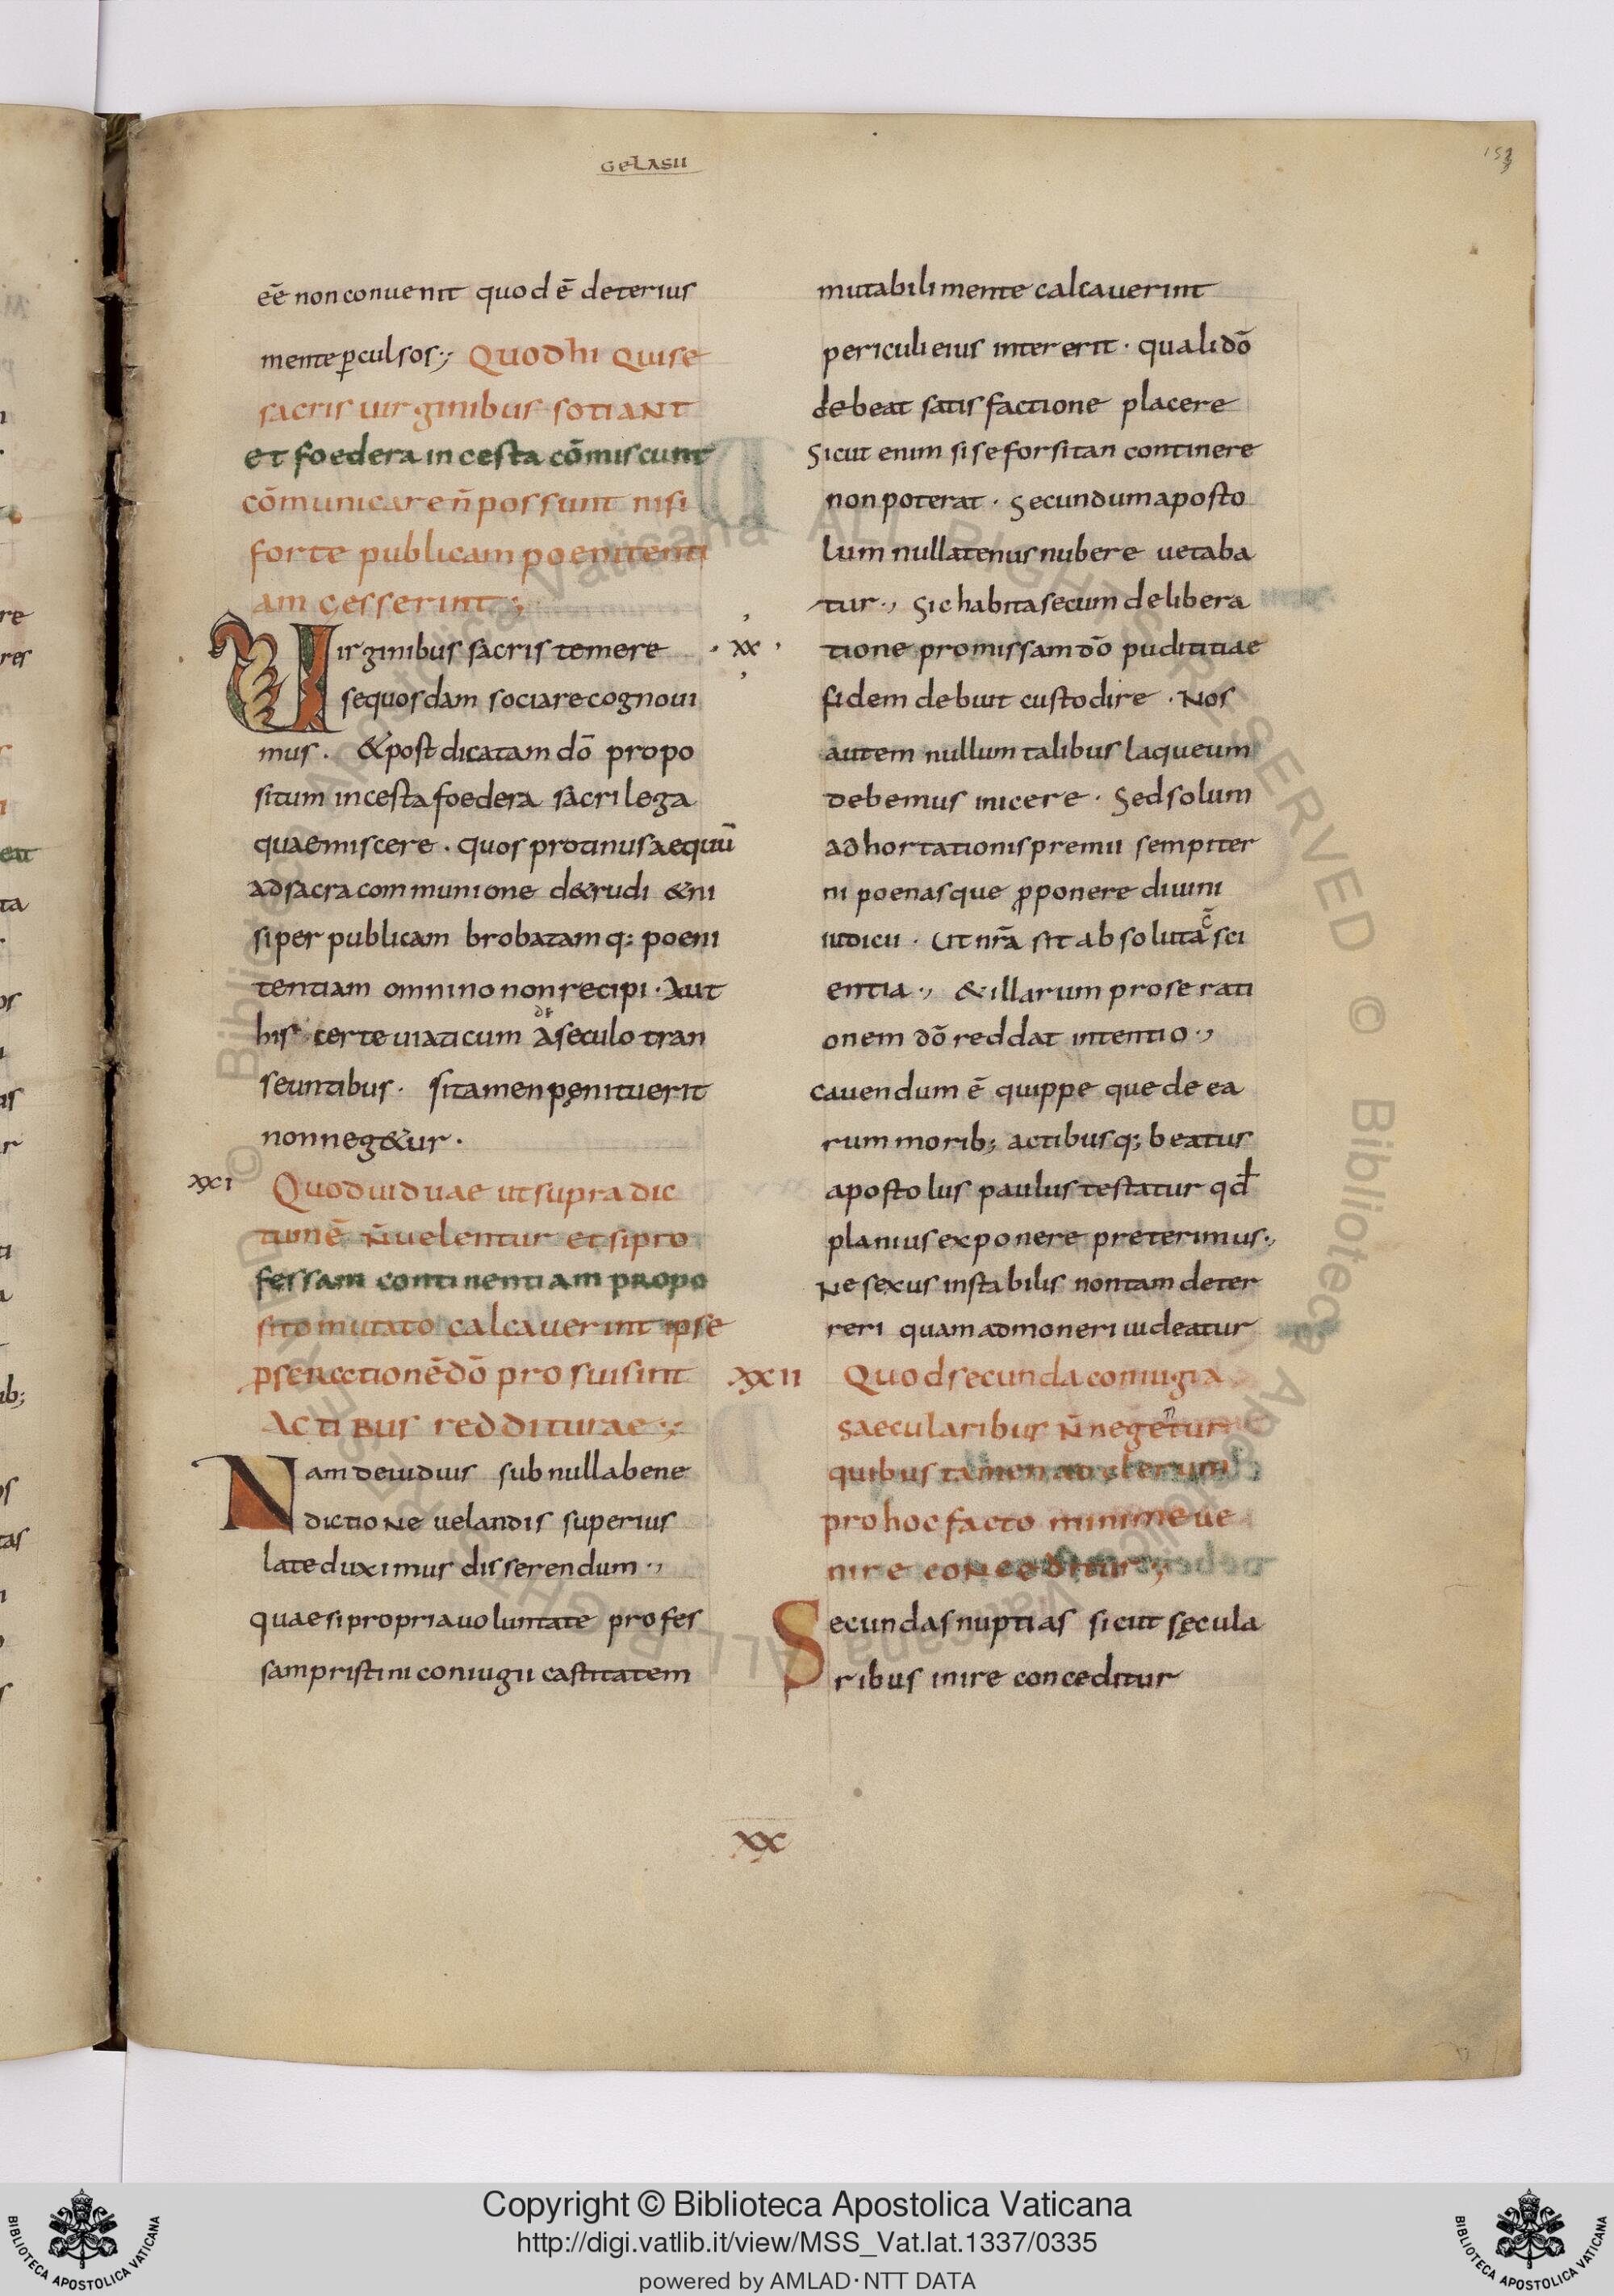 GELASII
153
eē non conuenit quod ē deterius
mente ꝑculsos·,
Quod hi qui se
sacris uirginibus sotiant
et foedera incesta cōmiscunt
cōmunicare n̄ possunt nisi
forte publicam poenitenti
am gesserint·,
Uirginibus sacris temere
· xx ·
se quosdam sociare cognoui
mus · & post dicatam dō propo
situm incesta foedera sacrilega
quae miscere · quos protinus aequū
ad sacra communione d&rudi &ni
si per publicam brobatamq: poeni
tentiam omnino non recipi · Aut
his certe uiaticum a seculo tran
seuntibus · si tamen pęnituerit
non neg&ur ·
xxi
Quod uiduae ut supra dic
tum ē n̄ uelentur et si pro
fessam continentiam propo
sito mutato calcauerint ipse
ꝑ se rectionē dō pro sui sint
actibus redditurae·,
Nam de uiduis sub nulla bene
dictione uelandis superius
late duximus disserendum·,
quae si propria uoluntate profes
sam pristini coniugii castitatem
mutabili mente calcauerint
periculi eius intererit · quali dō
debeat satisfactione placere
Sicut enim si se forsitan continere
non poterat · Secundum aposto
lum nullatenus nubere uetaba
tur·, Sic habita secum delibera
tione promissam dō pudititiae
fidem debuit custodire · Nos
autem nullum talibus laqueum
debemus inicere · Sed solum
adhortationis premii sempiter
ni poenasque ꝓponere diuini
iudicii · Ut nr̄a sit absoluta c̄sci
entia·, & illarum pro se rati
onem dō reddat intentio·,
Cauendum ē quippe que de ea
rum morib; actibusq; beatus
apostolus paulus testatur qđ
planius exponere preterimus·,
Ne sexus instabilis non tam deter
reri quam admoneri uideatur
xxii
Quod secunda coniugia
saecularibus n̄ negentur
quibus tamen ad clerum
pro hoc facto minime ue
nire conceditur·,
Secundas nuptias sicut sęcula
ribus inire conceditur
xx
Copyright © Biblioteca Apostolica Vaticana
http://digi.vatlib.it/view/MSS_Vat.lat.1337/0335
powered by AMLAD·NTT DATA
BIBLIOTECA APOSTOLICA VATICANA
BIBLIOTECA APOSTOLICA VATICANA
© Biblioteca Apostolica Vaticana ALL RIGHTS RESERVED © Biblioteca Apostolica Vaticana ALL RIGHTS RESERVED